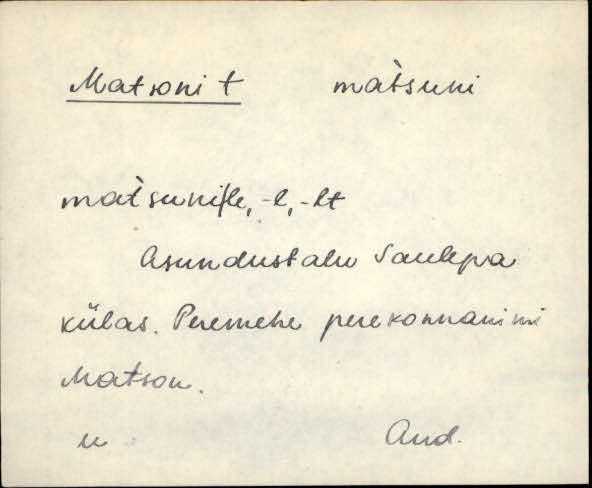 Matsoni t màtsuni
màtsunile, -l, -lt
Asundustalu Saulepa
külas. Peremehe perekonnanimi
Matson.
u And.